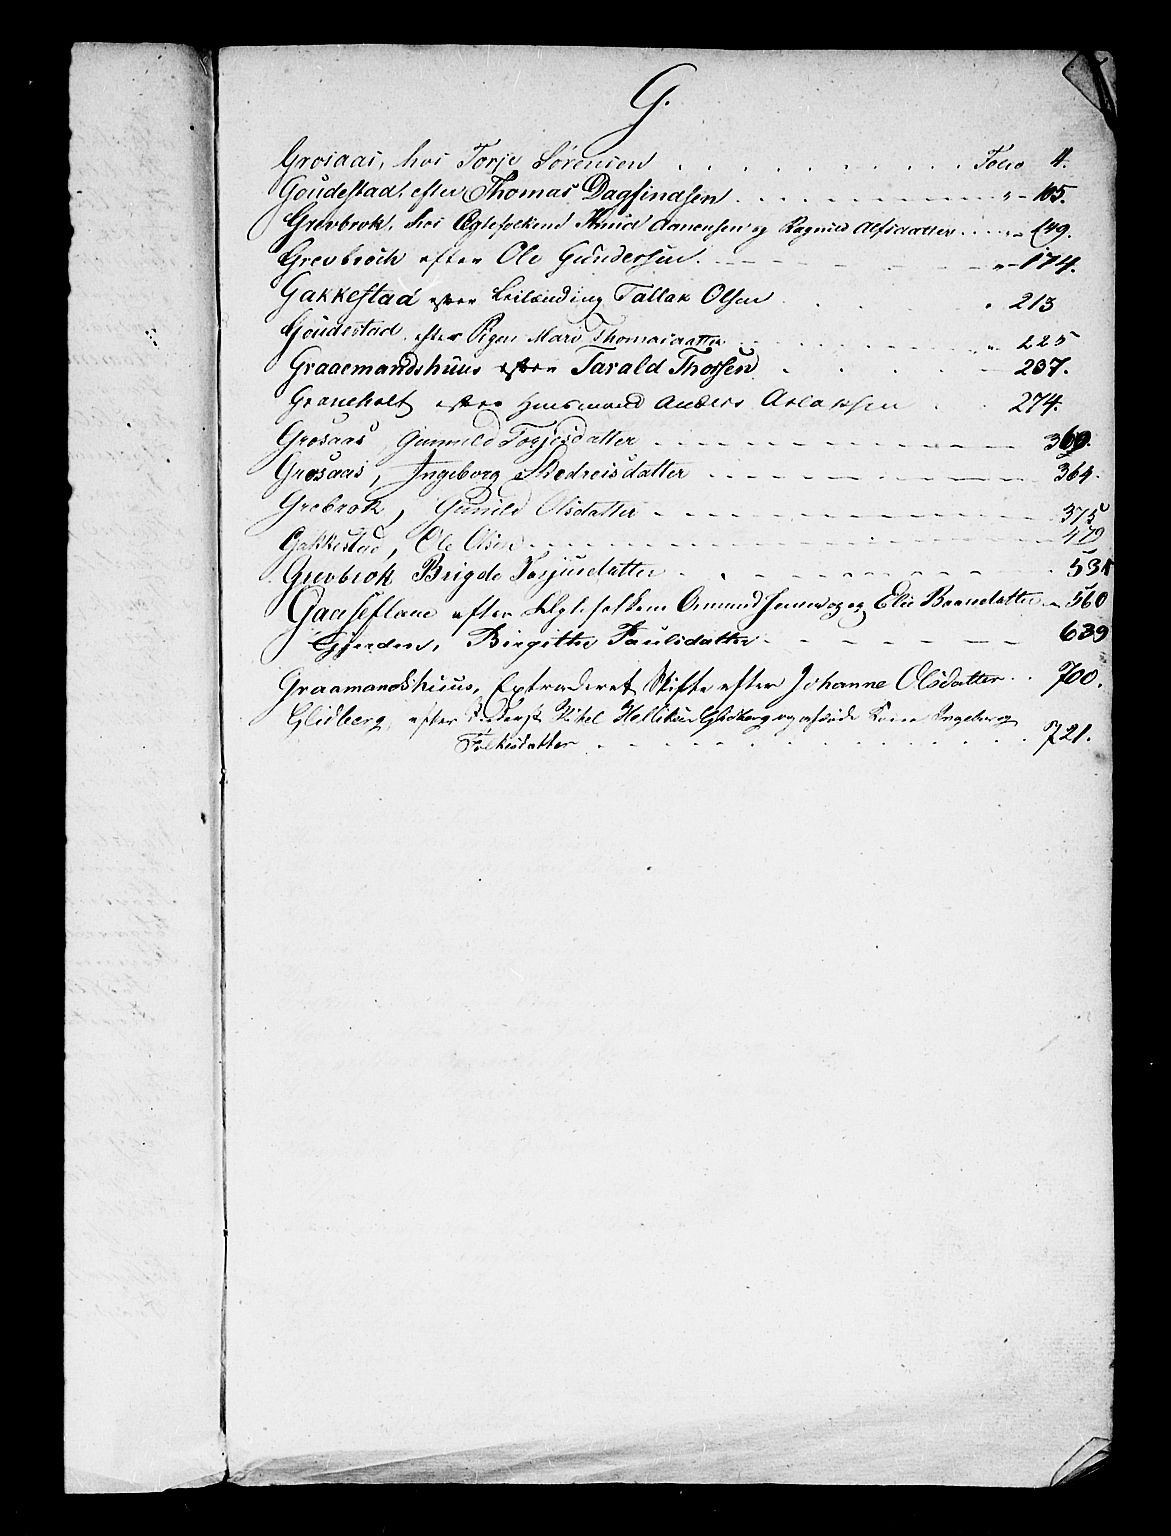 G.
Grosaas, hos Torje Sörensen . . . . . . . . Folio 4.
Goudestad, efter Thomas Dagfindsen . . . . . „ - 105.
Grevbrok, hos Ægtefolkene Knud Aanensen og Ragnild Alfsdatter . . . „ - 149.
Grevbroch efter Ole Gundersen. - - - - „ - 174.
Gakkestad efter Leilænding Tallak Olsen . . . . „ 213
Goudestad efter Pigen Mari Thomasdatter . . . . „ 225
Graaemandshuus efter Tarald Thorsen . . . . 237.
Graneholt efter Huusmand Anders Aslaksen . . 274.
Grosaas Gunnild Torjesdatter - - - - 360.
Grosaas, Ingeborg Redreisdatter - - - - 364.
Grebrok, Gunild Olsdatter - - - - 375
Gakkestad, Ole Olsen - - - - 479
Grevbrok Brigde Torjusdatter - - - - 531
Gaaseflane efter Ægtefolkene Omund Jensen og Eli Baardsdatter - 560
Gjerden, Birgitte Paulsdatter - - - - 639
Graamandshuus, Extraderet Skifte efter Johanne Olsdatter . . 700.
Glidberg, efter Kittel Glidberg og afdøde Kone Ingeborg
Folkisdatter . . . . . . . 721.